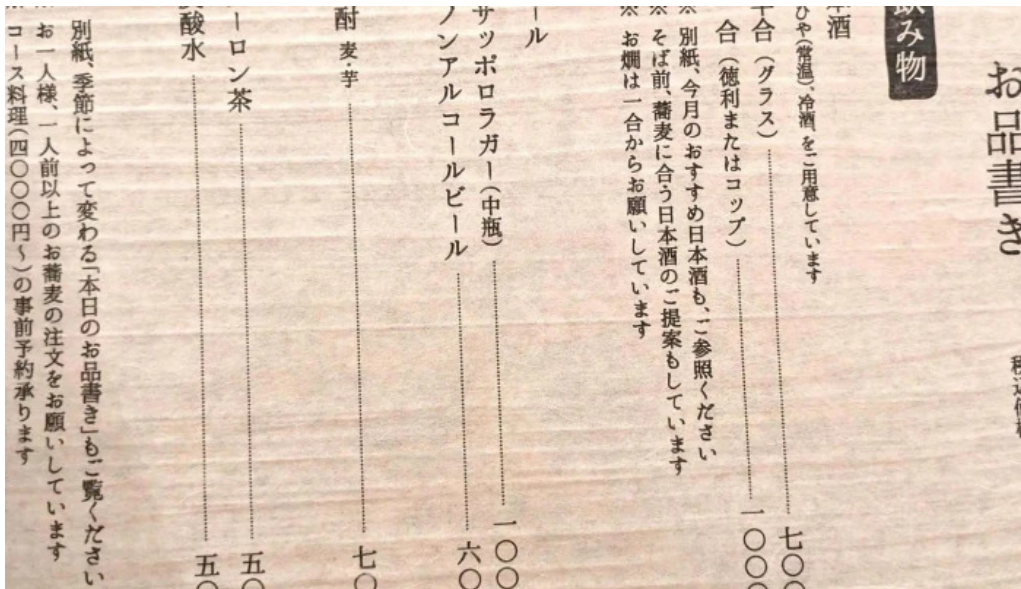 お品書き
飲み物
本酒
ひや(常温)、冷酒、をご用意しています
半合(グラス) 七〇〇
合(徳利またはコップ) 一〇〇〇
※ 別紙、今月のおすすめ日本酒も、ご参照ください
※ そば前、蕎麦に合う日本酒のご提案もしています
※ お燗は一合からお願いしています
ール
サッポロラガー(中瓶) 一〇〇
ノンアルコールビール 六〇
酎 麦・芋 七〇
ーロン茶 五〇
酸水 五〇
別紙、季節によって変わる「本日のお品書き」もご覧ください
お一人様、一人前以上のお蕎麦の注文をお願いしています
コース料理(四〇〇〇円〜)の事前予約承ります